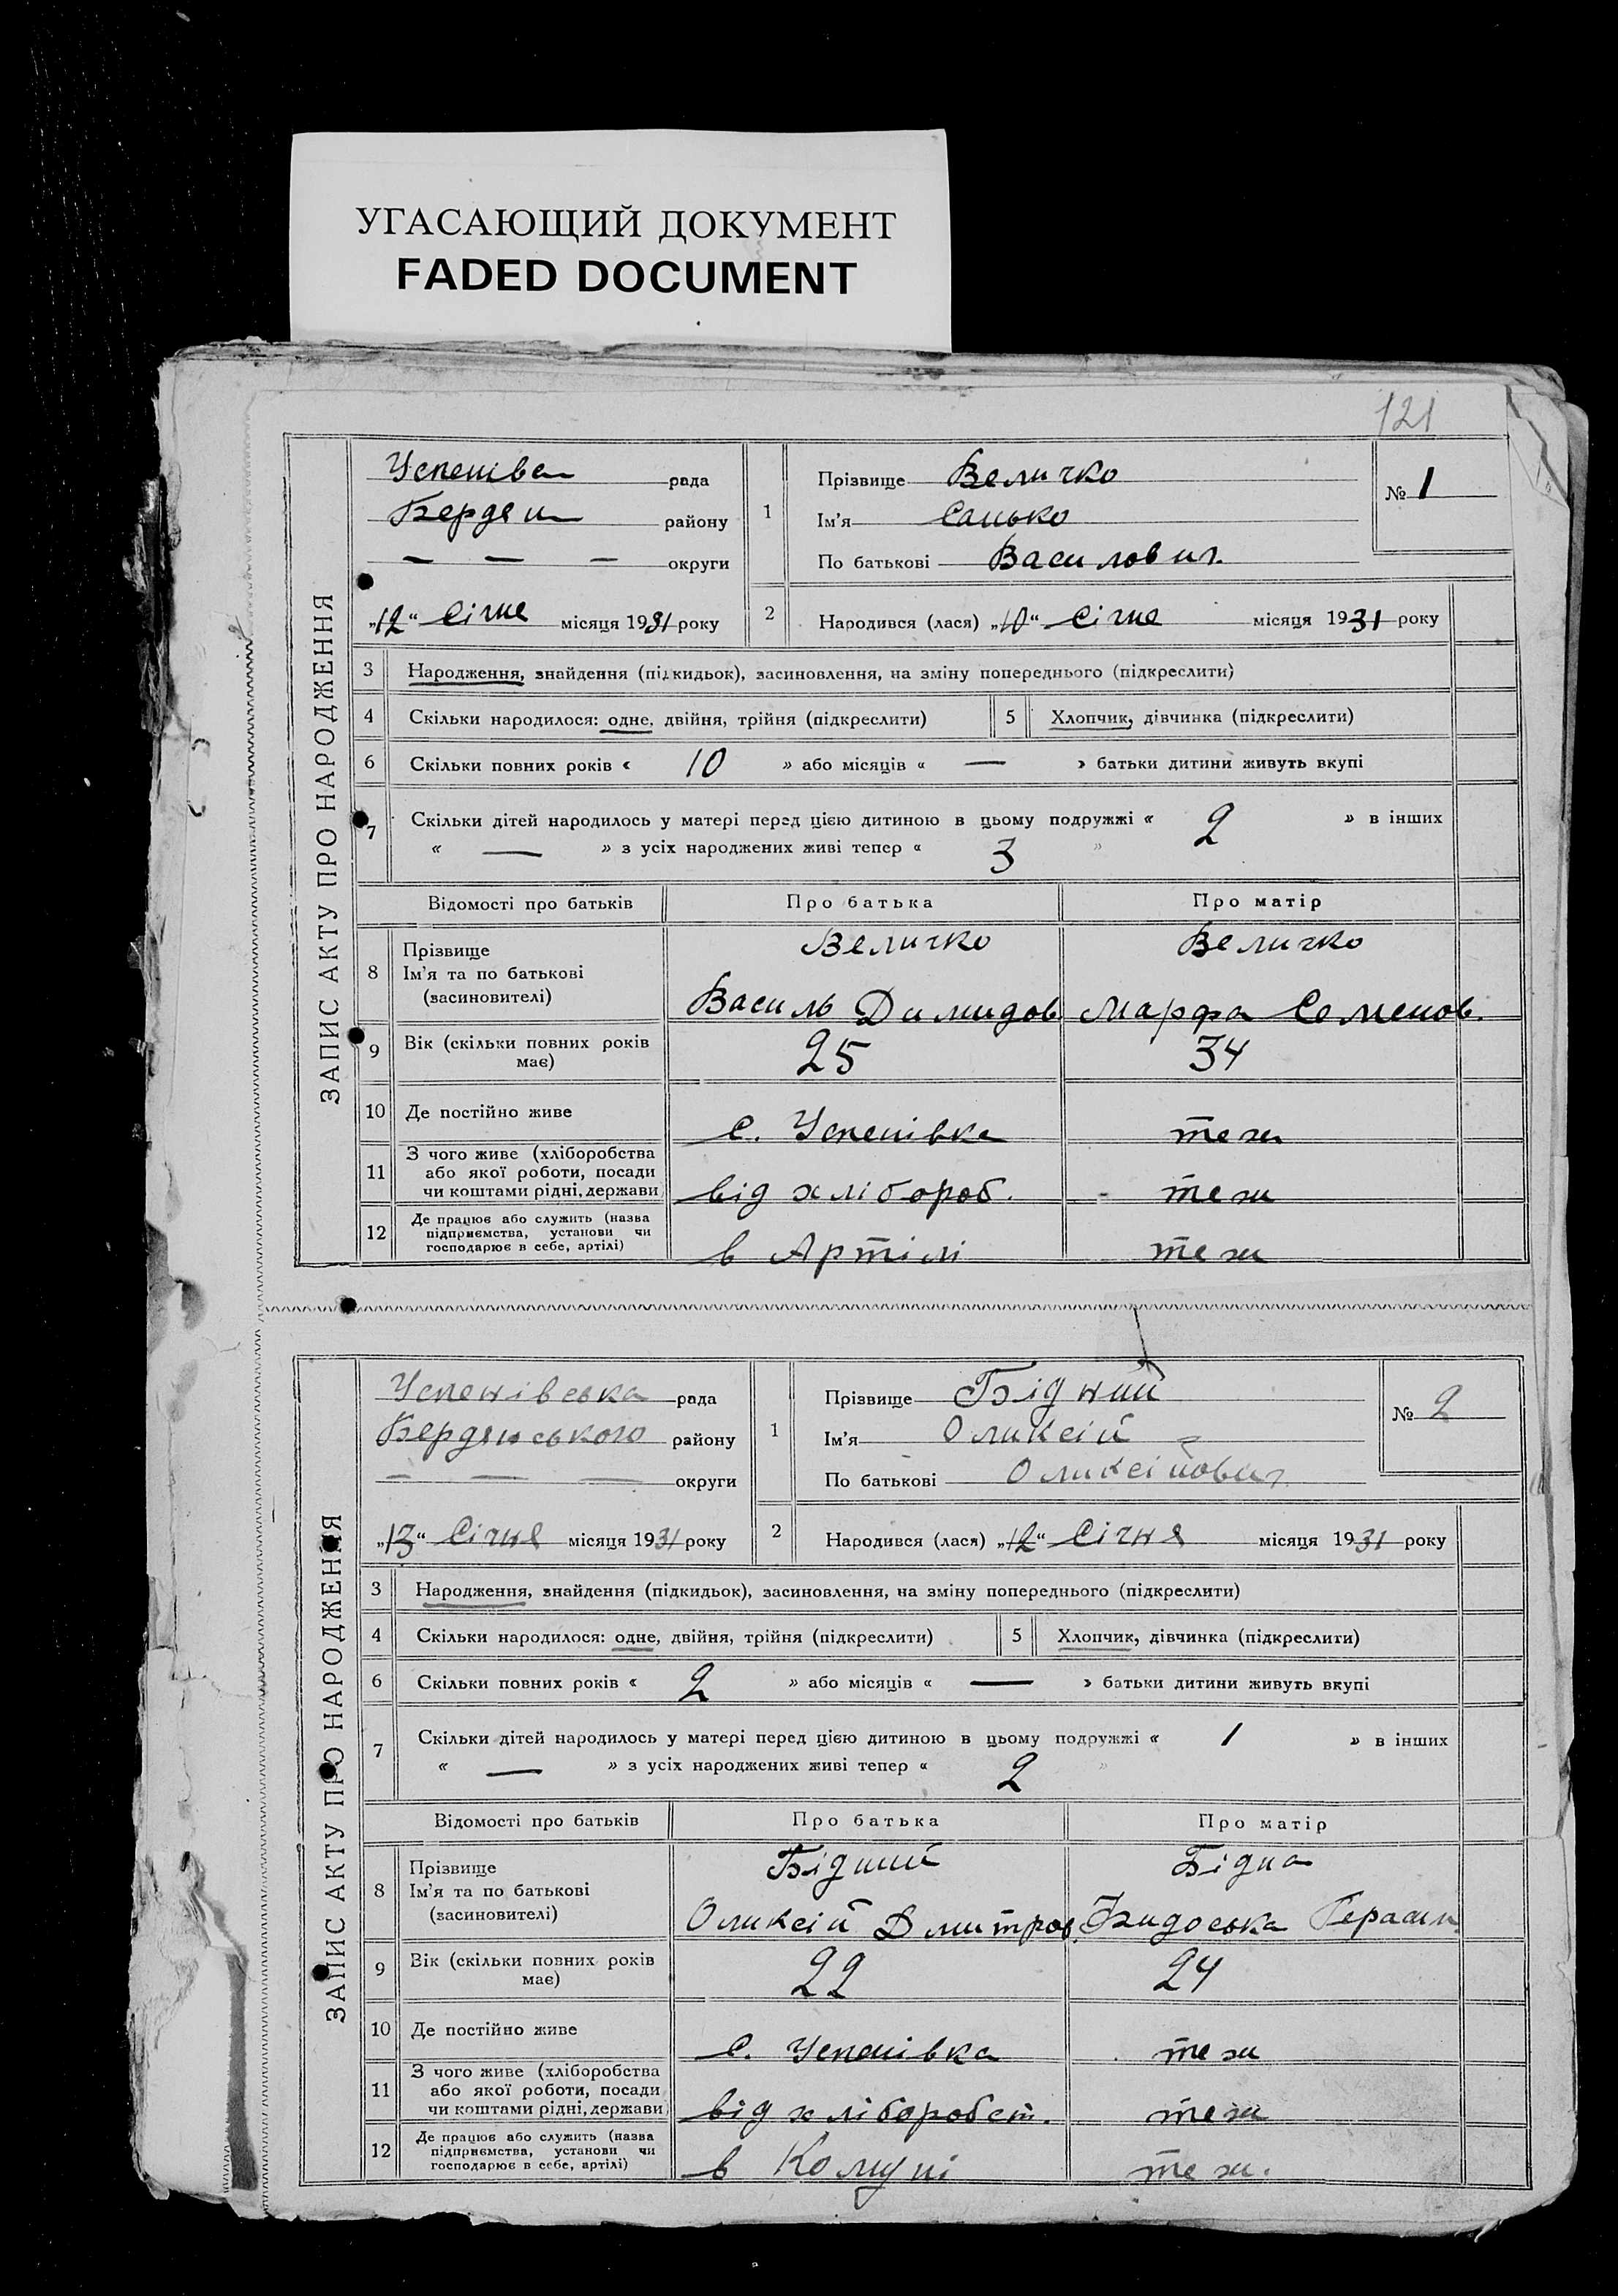 УГАСАЮЩИЙ ДОКУМЕНТ
FADED DOCUMENT
121
ЗАПИС АКТУ ПРО НАРОДЖЕННЯ
Успенівсь рада
Бердян району
— — — округи
„12“ Січне місяця 1931 року
1 Прізвище Величко
Ім'я Санько
По батькові Василович.
№ 1
2 Народився (лася) „10“ Січне місяця 1931 року
3 Народження, знайдення (підкидьок), засиновлення, на зміну попереднього (підкреслити)
4 Скільки народилося: одне, двійня, трійня (підкреслити) 5 Хлопчик, дівчинка (підкреслити)
6 Скільки повних років « 10 » або місяців « — » батьки дитини живуть вкупі
7 Скільки дітей народилось у матері перед цією дитиною в цьому подружжі « 2 » в інших
« — » з усіх народжених живі тепер « 3 »
Відомості про батьків Про батька Про матір
8 Прізвище Величко Величко
Ім'я та по батькові
(засиновителі) Василь Димидов Марфа Семенов.
9 Вік (скільки повних років має) 25 34
10 Де постійно живе с. Успенівка теж
11 З чого живе (хліборобства
або якої роботи, посади
чи коштами рідні, держави від хлібороб. - теж
12 Де працює або служить (назва
підприємства, установи чи
господарює в себе, артілі) в Артілі теж
ЗАПИС АКТУ ПРО НАРОДЖЕННЯ
Успенівська рада
Бердянського району
— — — округи
„13“ Січня місяця 1931 року
1 Прізвище Бідний
Ім'я Оликсій
По батькові Оликсійович
№ 2
2 Народився (лася) „12“ Січня місяця 1931 року
3 Народження, знайдення (підкидьок), засиновлення, на зміну попереднього (підкреслити)
4 Скільки народилося: одне, двійня, трійня (підкреслити) 5 Хлопчик, дівчинка (підкреслити)
6 Скільки повних років « 2 » або місяців « — » батьки дитини живуть вкупі
7 Скільки дітей народилось у матері перед цією дитиною в цьому подружжі « 1 » в інших
« — » з усіх народжених живі тепер « 2 »
Відомості про батьків Про батька Про матір
8 Прізвище Бідний Бідна
Ім'я та по батькові
(засиновителі) Оликсій Дмитров. Герасим
9 Вік (скільки повних років має) 22 24
10 Де постійно живе с. Успенівка теж
11 З чого живе (хліборобства
або якої роботи, посади
чи коштами рідні, держави від хліборобст. теж
12 Де працює або служить (назва
підприємства, установи чи
господарює в себе, артілі) в Комуні теж.